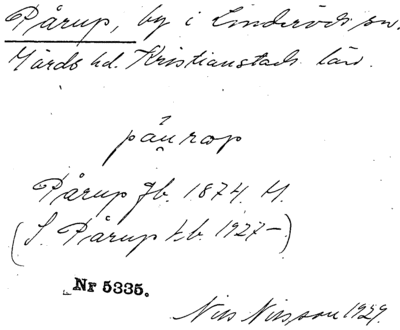 Pårup, by i Linderöds sn.
Gärds hd. Kristianstads län.
påurop
Pårup Jb. 1874. H.
(S. Pårup t.b. 1927-)
Nr 5335.
Nils Nilsson 1929.